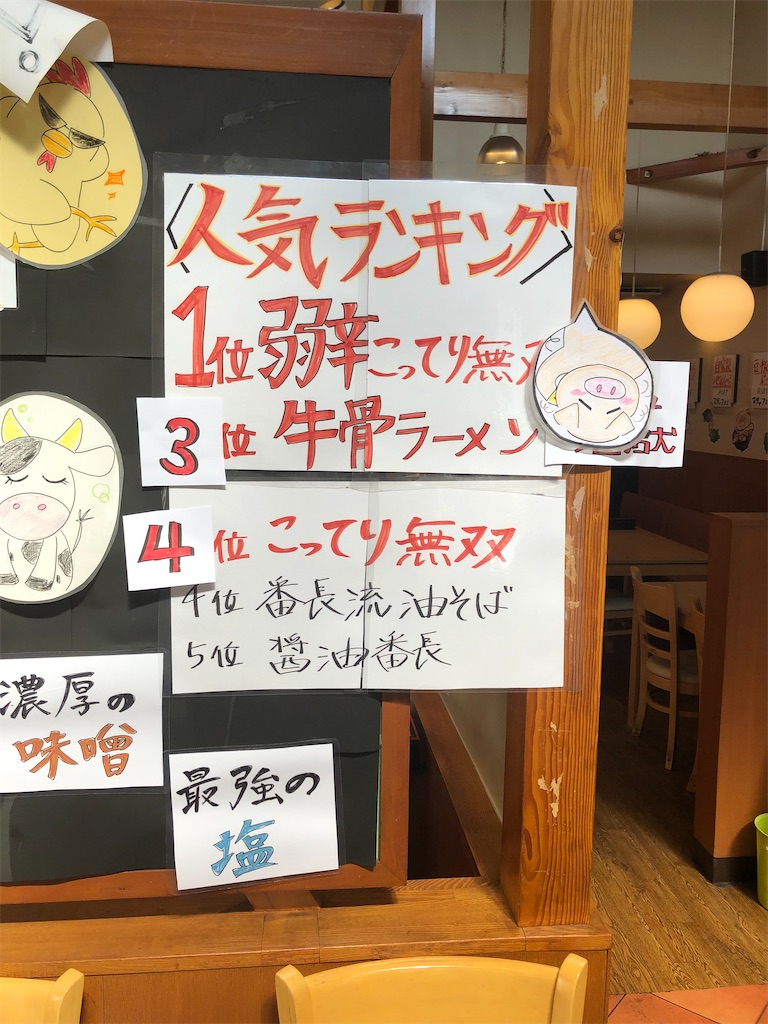 〈人気ランキング〉
1位 弱辛こってり無双
3位 牛骨ラーメン
4位 こってり無双
4位 番長流 油そば
5位 醤油番長
濃厚の
味噌
最強の
塩